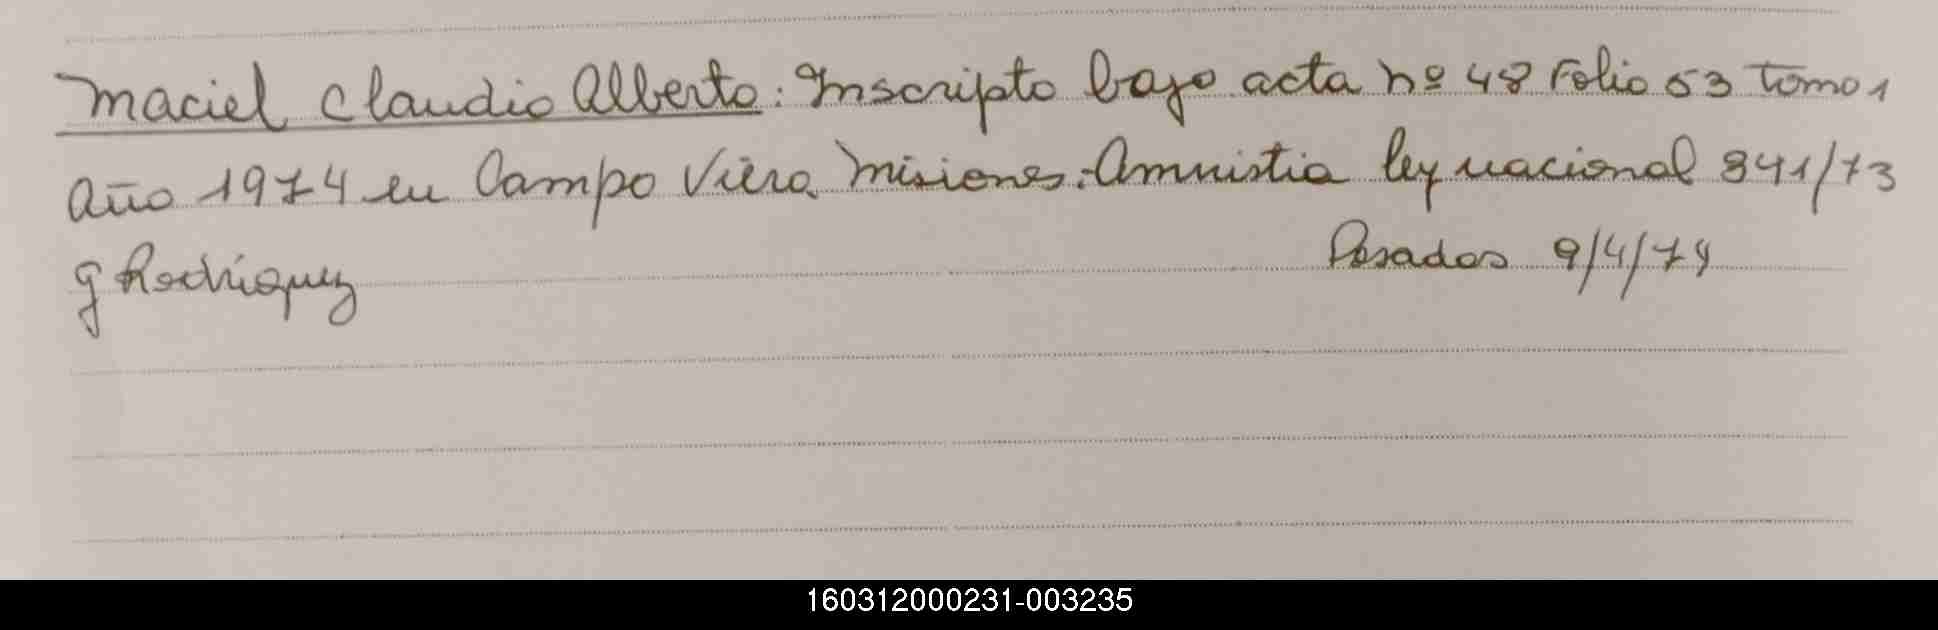 Maciel Claudio Alberto: Inscripto bajo acta nº 48 Folio 53 Tomo 1
Año 1974 en Campo Viera Misiones. Amnistia ley nacional 841/73
g Rodriguez
Posadas 9/4/74
160312000231-003235